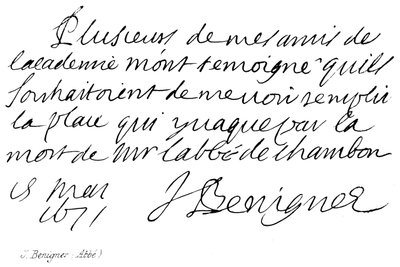 Plusieurs de mes amis de
lacademie m'ont temoigne quils
souhaitoient de me voir remplir
la place qui y vaque par la
mort de Mr labbé de Chambon
18 Mar
1671 J Benigner
J. Benigner (Abbé)